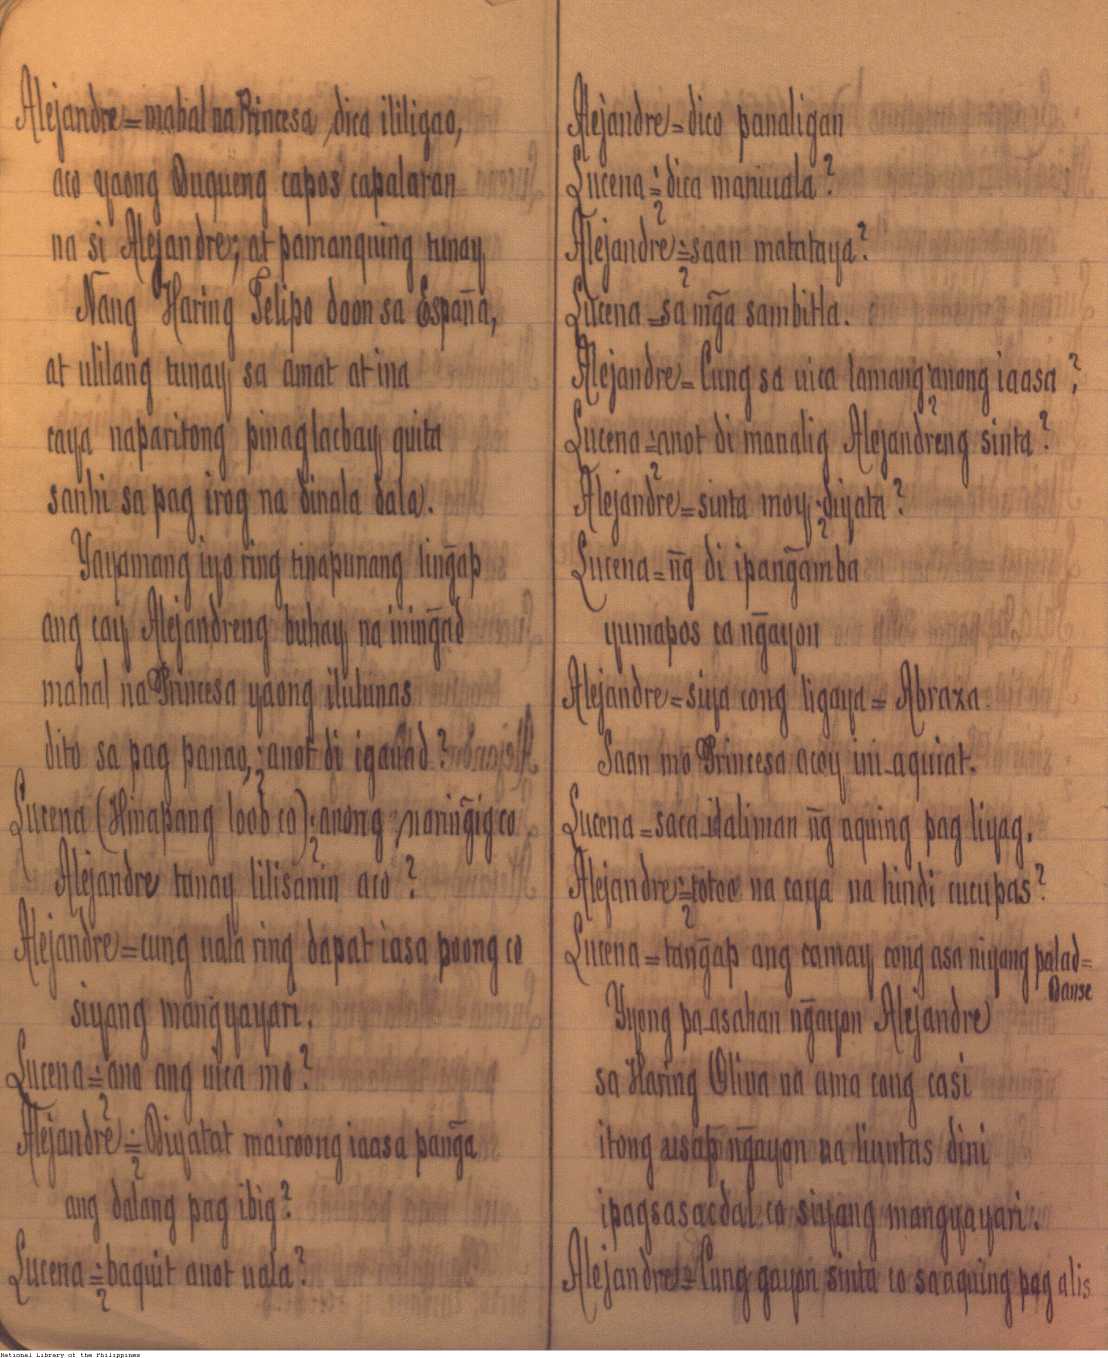 Alejandre = mahal na Princesa, dica ililigao,
aco yaong Duqueng capos capalaran
na si Alejandre; at pamanquing tunay
Nang Haring Felipo doon sa España,
at ulilang tunay sa amat at ina
caya naparitong pinaglacbay quita
sanhi sa pag irog na dinala dala.
Yayamang iyo ring tinapunang ling̃ap
ang cay Alejandreng buhay na ining̃ad
mahal na Princesa yaong ilulunas
dito sa pag panao, ¿anot di igauad?
Lucena (Hinapang loob co) ¿anong naring̃ig co
Alejandre tunay lilisanin aco?
Alejandre = cung uala ring dapat iasa poong co
siyang mangyayari.
Lucena = ¿ano ang uica mo?
Alejandre = ¿Diyatat mairoong iaasa pang̃a
ang dalang pag ibig?
Lucena = ¿baquit anot uala?
Alejandre = dico panaligan
Lucena = ¿dica maniuala?
Alejandre = ¿saan matataya?
Lucena = sa mg̃a sambitla.
Alejandre = Cung sa uica lamang ¿anong iaasa?
Lucena = ¿anot di manalig Alejandreng sinta?
Alejandre = sinta moy ¿diyata?
Lucena = ñg di ipang̃amba
yumapos ca ng̃ayon
Alejandre = siya cong ligaya = Abraza
Saan mo Princesa acoy ini-aquiat.
Lucena = saca idaliman ñg aquing pag liyag.
Alejandre = ¿totoo na caya na hindi cucupas?
Lucena = tang̃ap ang camay cong asa niyang palad =
Danse
Yyong pa-asahan ng̃ayon Alejandre
sa Haring Oliva na ama cong casi
itong usap ng̃ayon na liuntas dini
ipagsasacdal co siyang mangyayari.
Alejandre = Cung gayon sinta co sa aquing pag alis
National Library of the Philippines